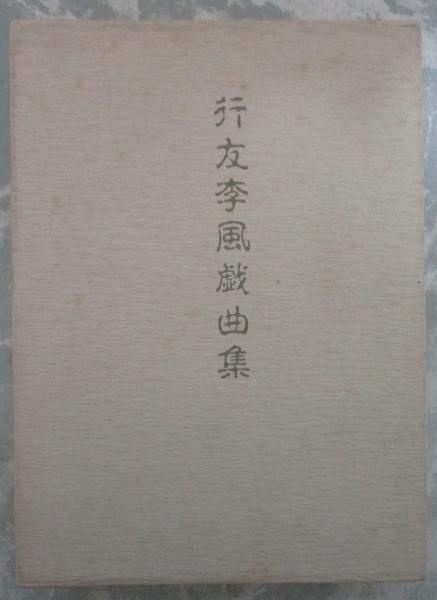 行友李風戯曲集